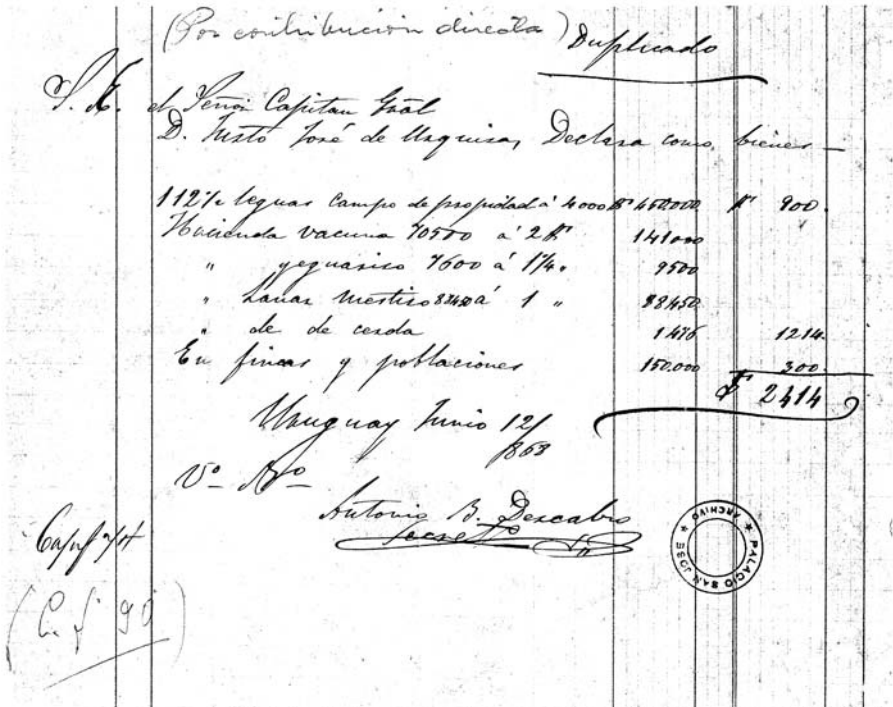 (Por contribucion directa) Duplicado
S. E. el Señor Capitan Gral
D. Justo José de Urquiza, Declara como bienes —
112½ leguas campo de propiedad á 4000 $ 450.000 $ 900.
Hacienda vacuna 70500 á 2 $ 141000
" yeguariso 7600 á 1¼ " 9500
" Lanar mestiso 88450 á 1 " 88450
" de de cerda 1476 1214.
En fincas y poblaciones 150.000 300.
$ 2414
Uruguay Junio 12/
1868
Vº Bº
Antonio B.
ARCHIVO * PALACIO SAN JOSE *
90